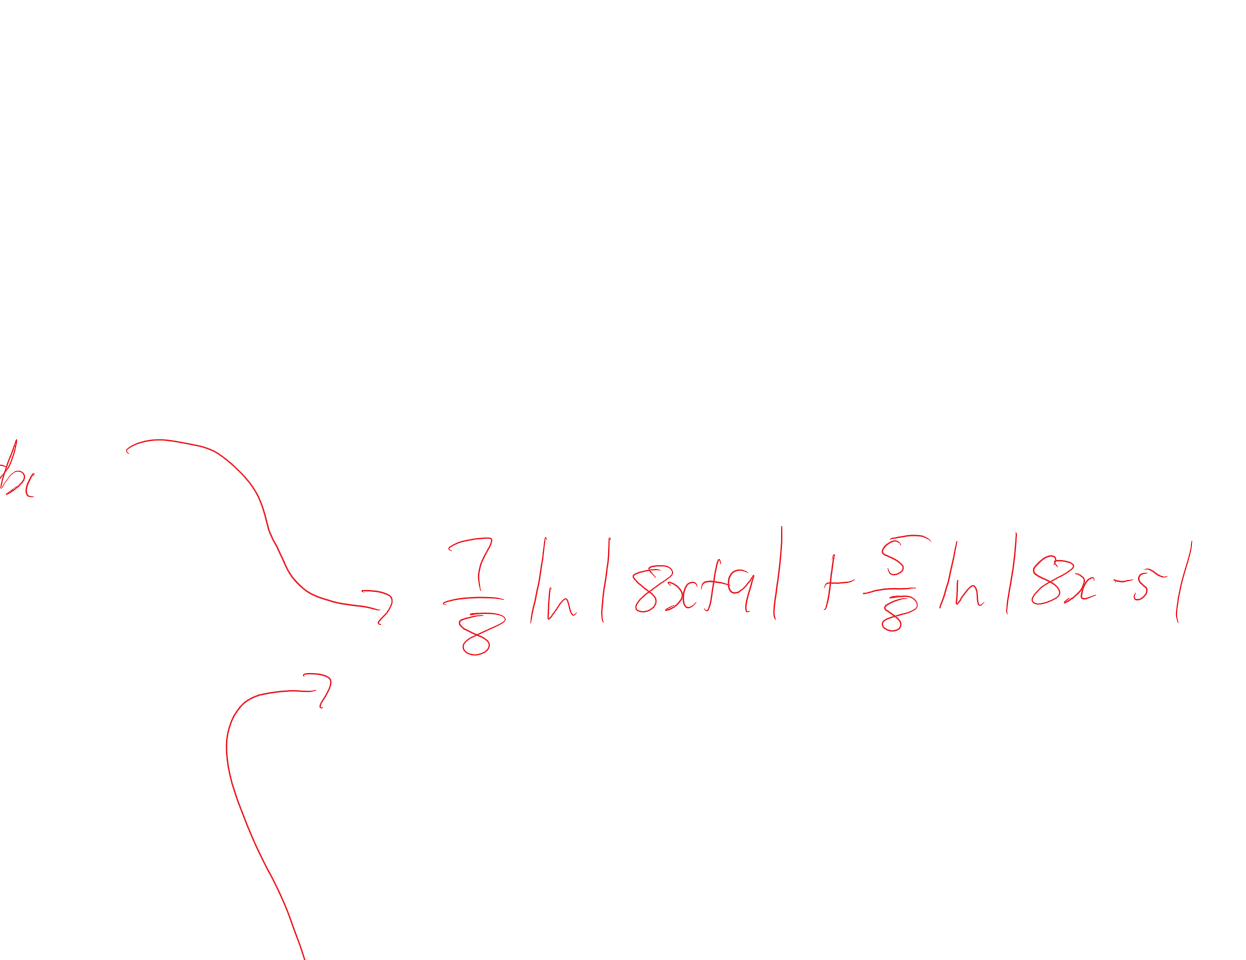 dx
7/8 ln|8x+9| + 5/8 ln|8x-5|